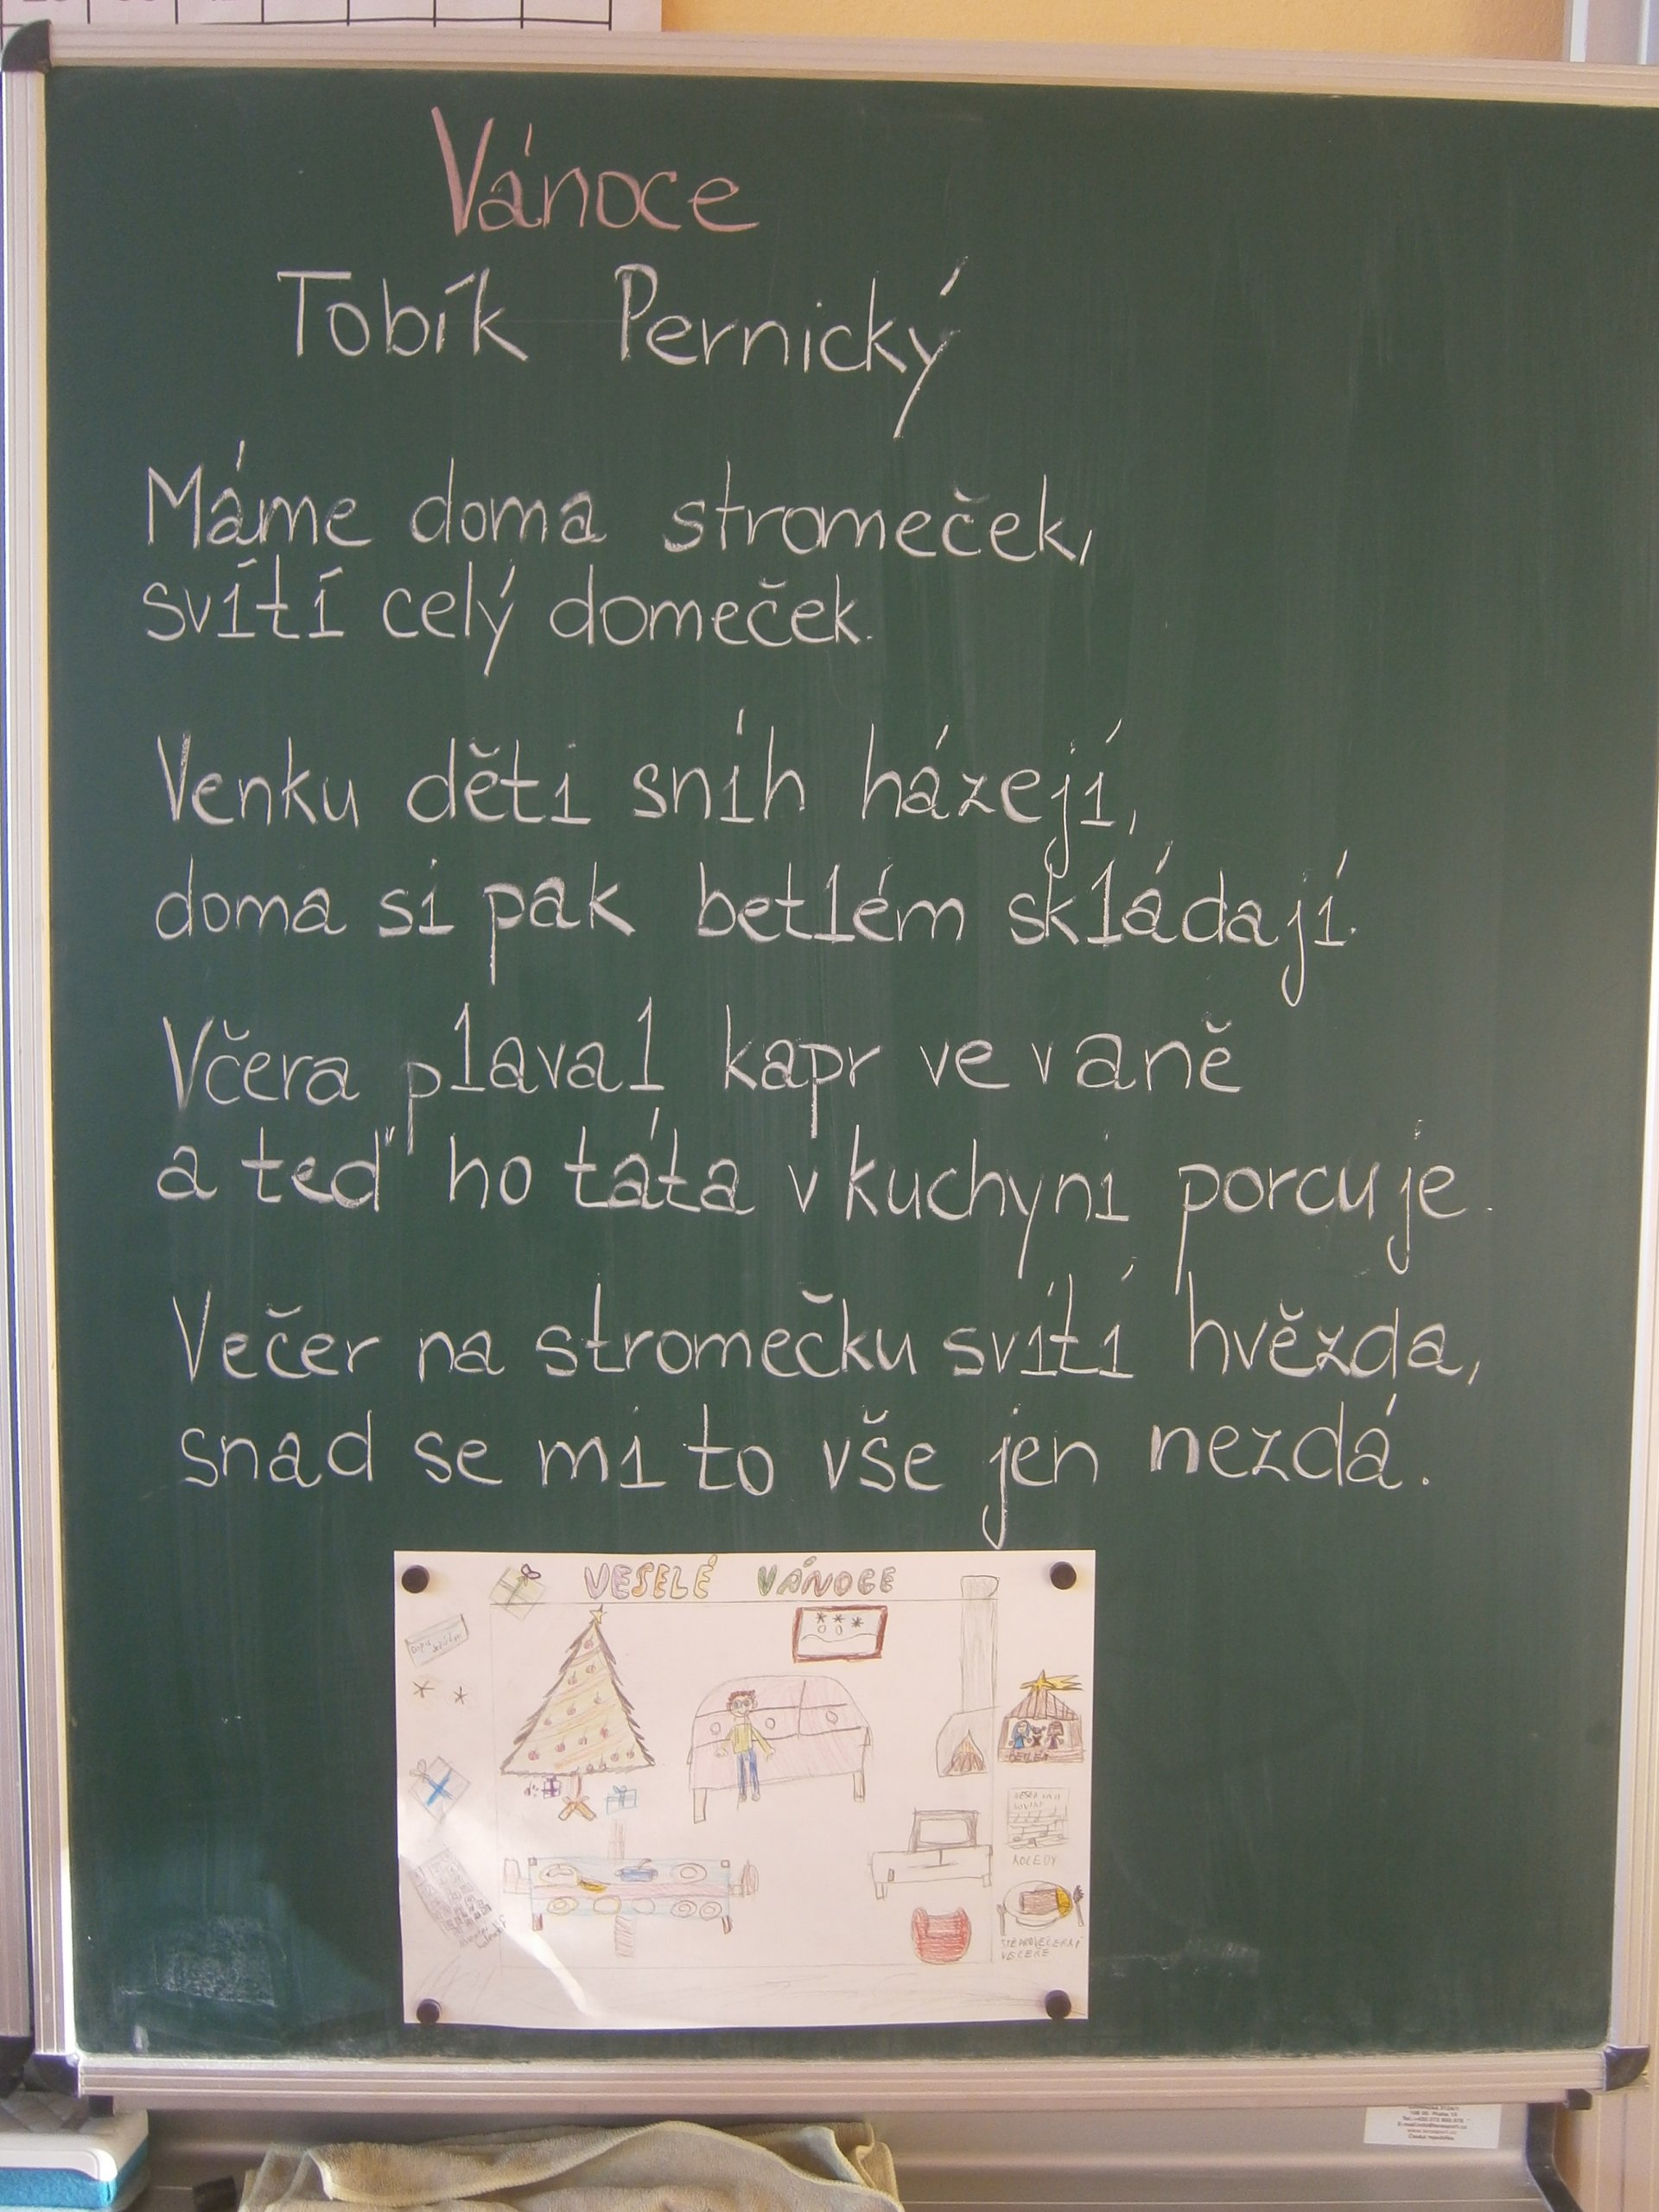 Vánoce
Tobík Pernický
Máme doma stromeček,
svítí celý domeček.
Venku děti sníh házejí,
doma si pak betlém skládají.
Včera plaval kapr ve vaně
a teď ho táta v kuchyni porcuje.
Večer na stromečku svítí hvězda,
snad se mi to vše jen nezdá.
VESELÉ VÁNOCE
KOLEDY
VEČEŘE